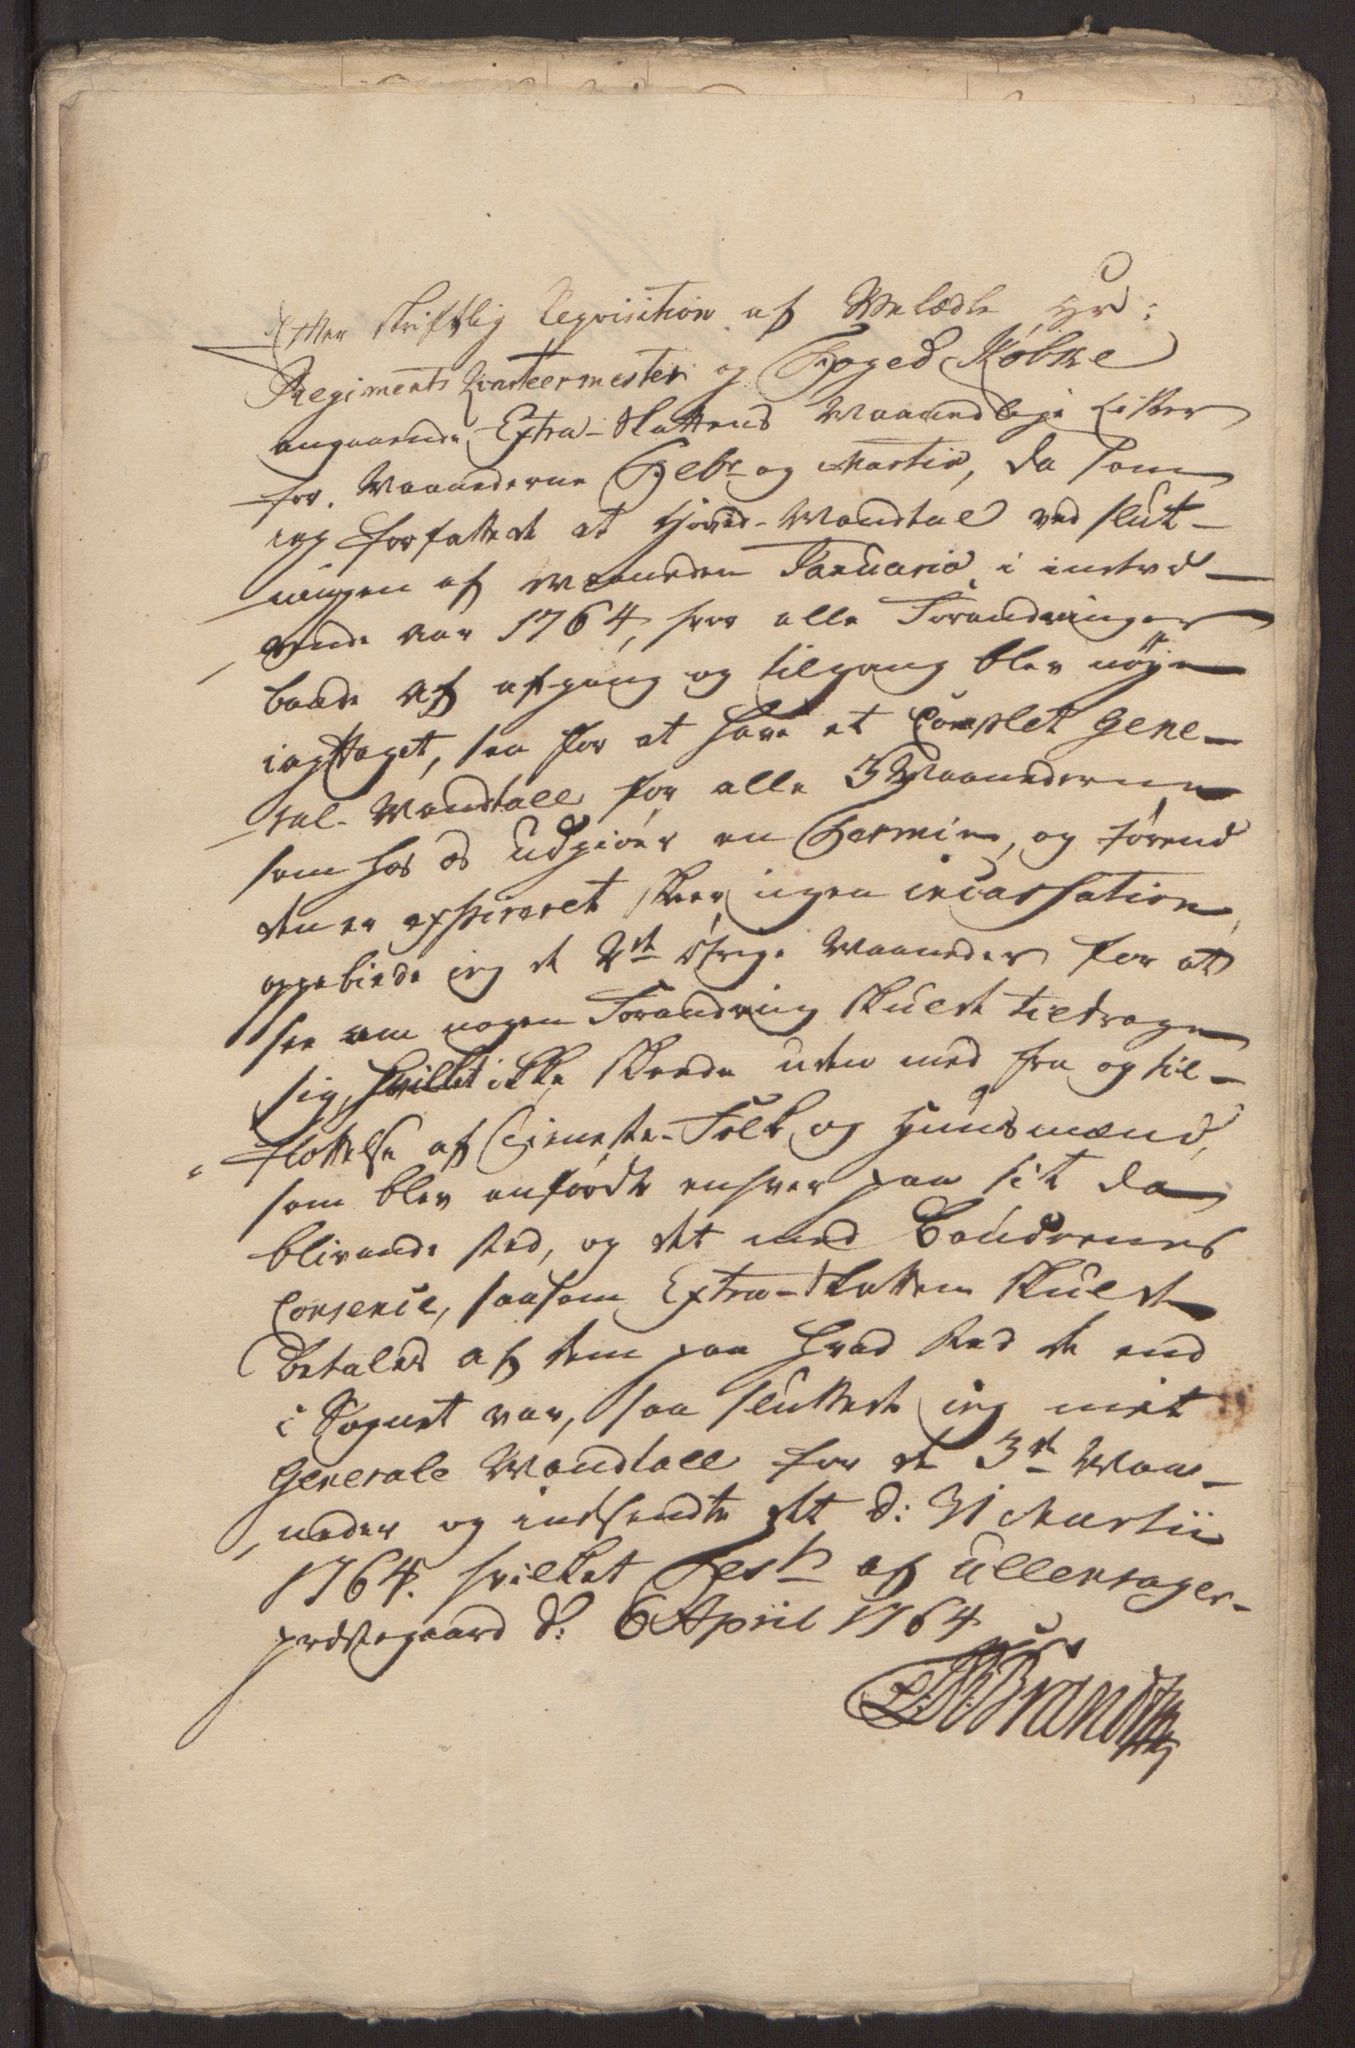 Efter skriftlig Reqvisition af Velædle Hr:
Regiments Qvarteermester og Foged Købke
angaaende Extra-Skattens Maanedlige Lister
for Maanederne Febr og Martio, da som
jeg forfattede et Hoved-Mandtal ved slut-
ningen af Maaneden Januario i indevæ-
rende aar 1764, hvor alle Forandringer
baade af afgang og tilgang blev nøye
iagttaget, saa for at have et Complet Gene-
ral-Mandtall for alle 3 Maanederne
som hos os udgiør en Termin, og førend
den er exspireret skeer ingen incassation,
oppebiede jeg de 2de øfrige Maaneder for at
see om nogen Forandring skulde tildrage
sig, hvilket ikke skeede uden med fra og til-
flöttelse af Tieneste-Folk og Huusmænd,
som blev anførdte enhver paa sit da
blivende sted, og det med Böndernes
Consens, saasom Extra-Skatten skulde
Betales af dem paa hvad sted de end
i Sognet var, saa sluttede jeg mit
Generale Mandtall for de 3de Maa-
neder og indsendte det d: 31 Martii
1764. hvilket Test: af Ullensager-
præstegaard d: 6 April 1764
Brandt